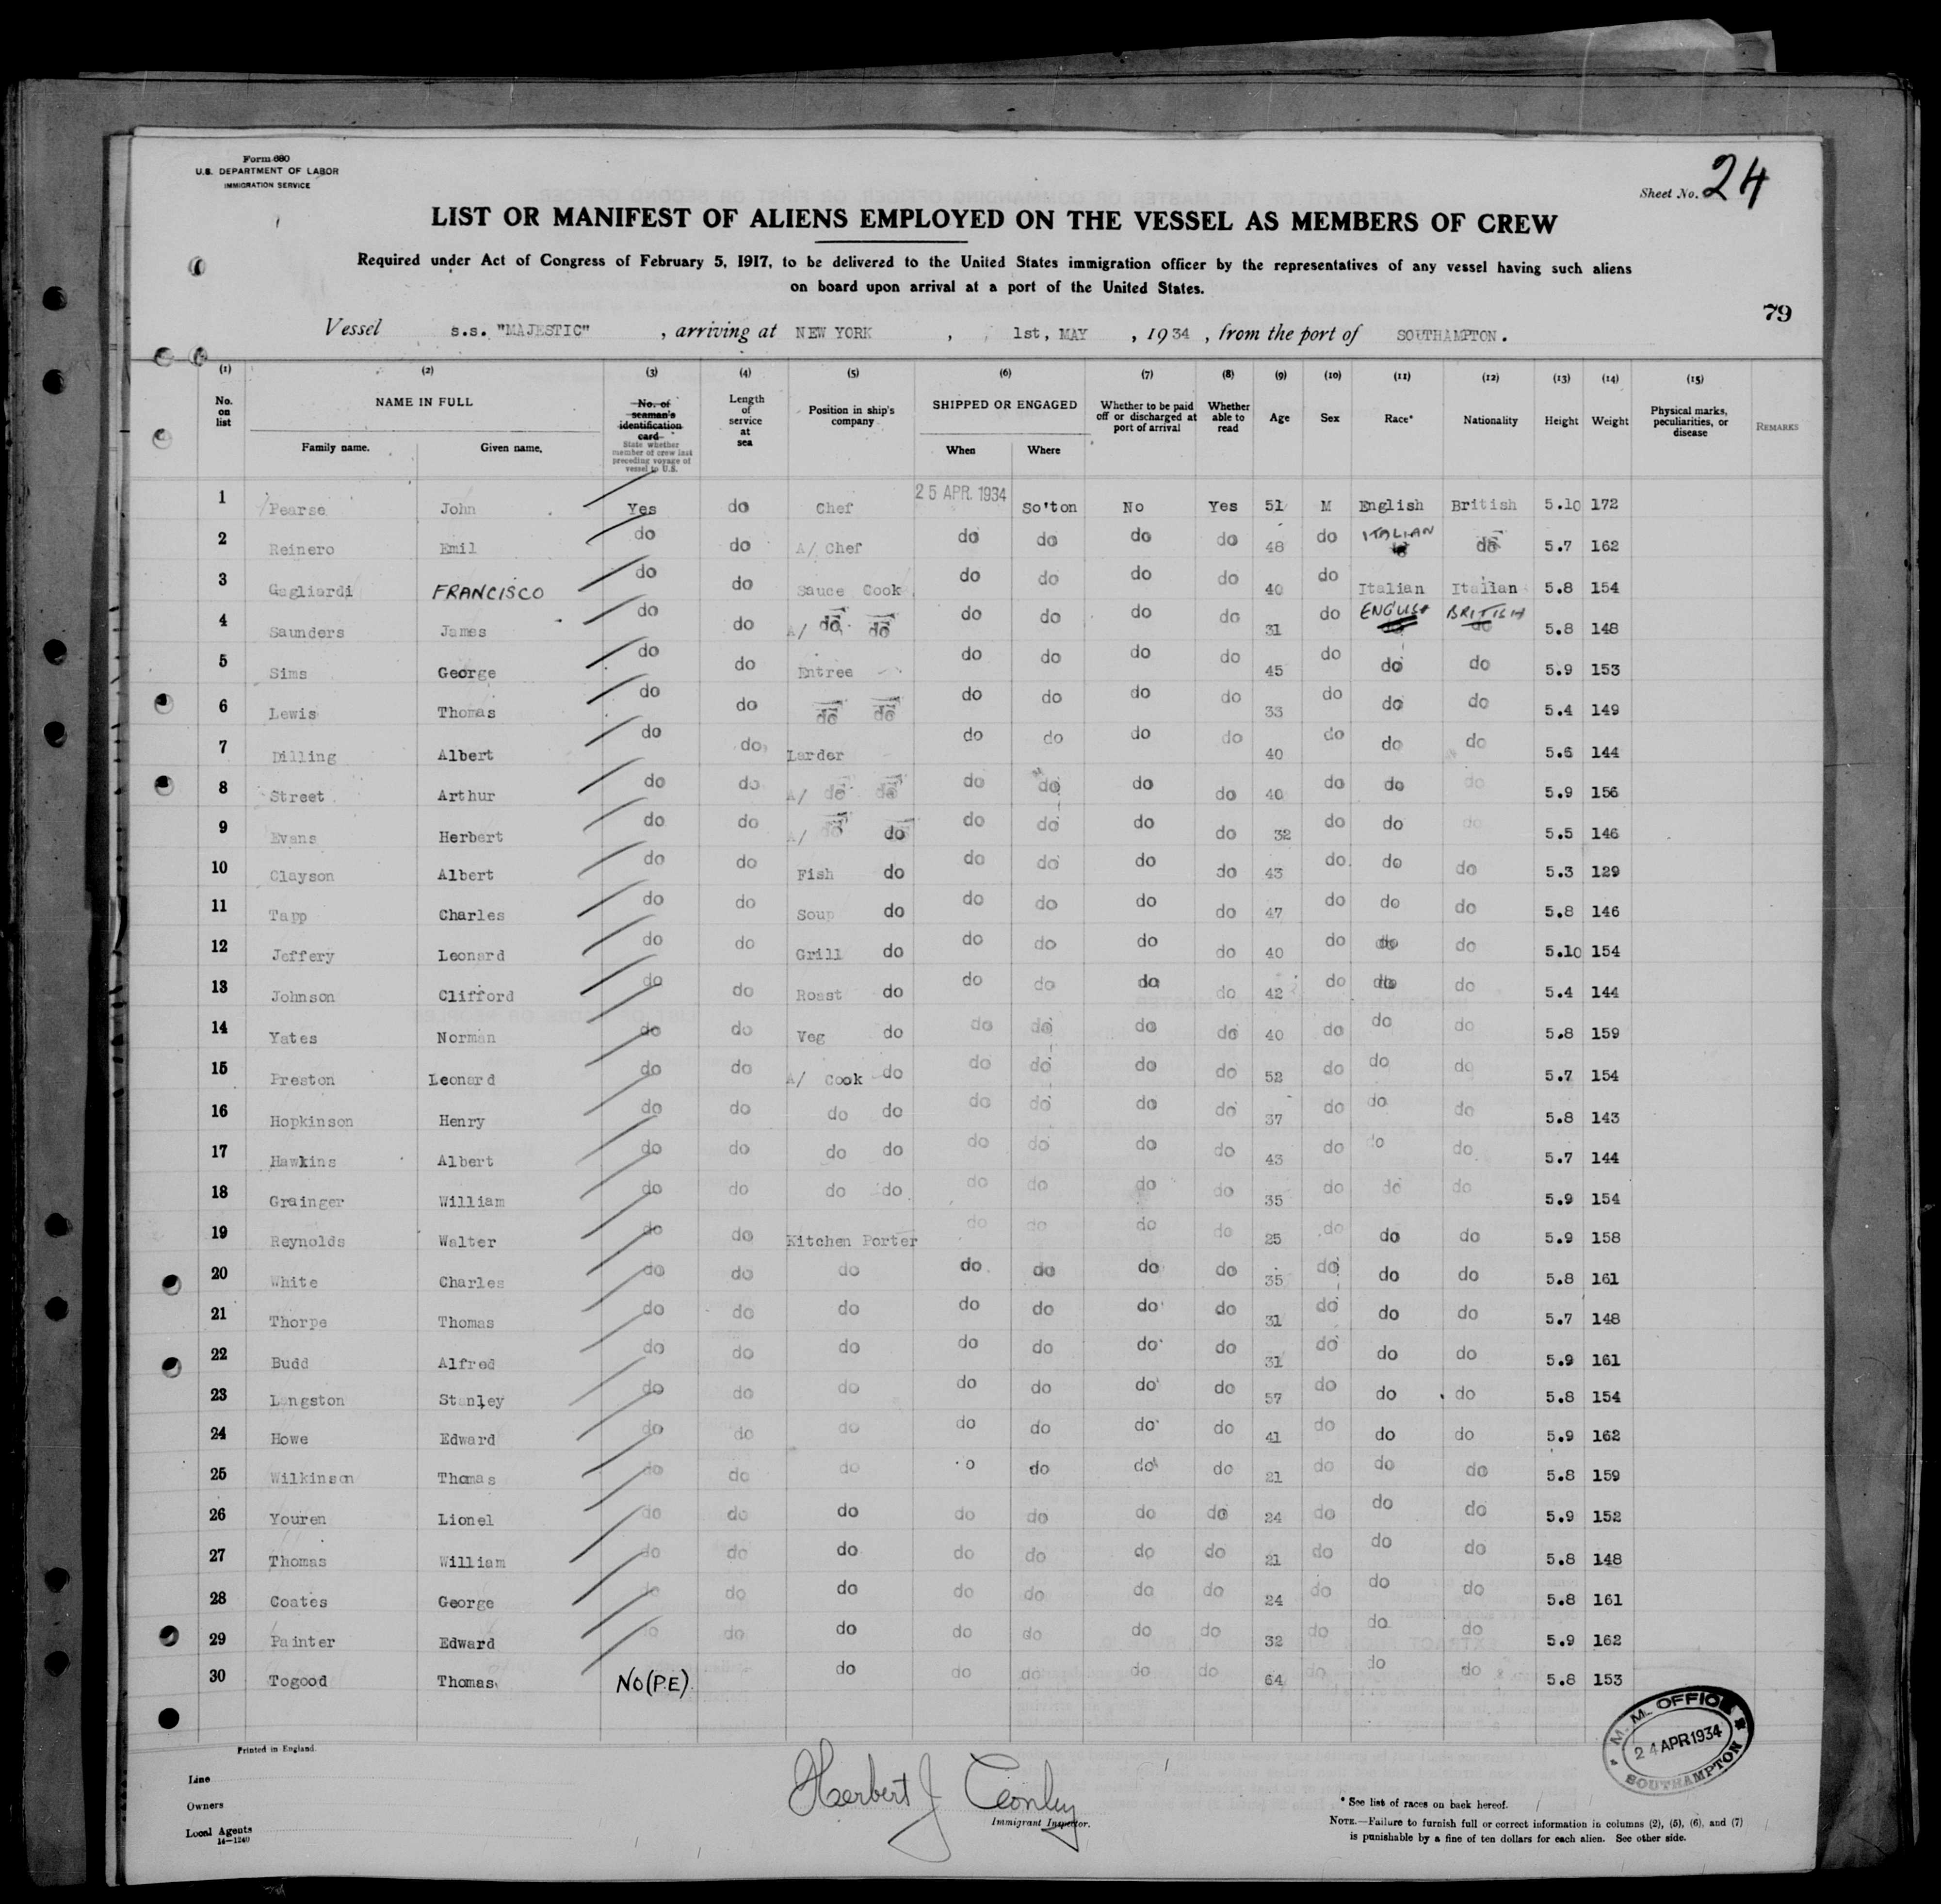 Form 680
U.S. DEPARTMENT OF LABOR
IMMIGRATION SERVICE
Sheet No. 24
LIST OR MANIFEST OF ALIENS EMPLOYED ON THE VESSEL AS MEMBERS OF CREW
Required under Act of Congress of February 5, 1917, to be delivered to the United States immigration officer by the representatives of any vessel having such aliens
on board upon arrival at a port of the United States.
79
Vessel s.s. "MAJESTIC" , arriving at NEW YORK , 1st, MAY , 1934 , from the port of SOUTHAMPTON.
(1) (2) (3) (4) (5) (6) (7) (8) (9) (10) (11) (12) (13) (14) (15)
No. on list NAME IN FULL Family name. Given name. No. of seaman's identification card State whether member of crew last preceding voyage of vessel to U.S. Length of service at sea Position in ship's company SHIPPED OR ENGAGED When Where Whether to be paid off or discharged at port of arrival Whether able to read Age Sex Race* Nationality Height Weight Physical marks, peculiarities, or disease REMARKS
1 Pearse John Yes do Chef 25 APR. 1934 So'ton No Yes 51 M English British 5.10 172
2 Reinero Emil do do A/ Chef do do do do 48 do ITALIAN do 5.7 162
3 Gagliardi FRANCISCO do do Sauce Cook do do do do 40 do Italian Italian 5.8 154
4 Saunders James do do A/ do do do do do do 31 do ENGLISH BRITISH do 5.8 148
5 Sims George do do Entree do do do do 45 do do do 5.9 153
6 Lewis Thomas do do do do do do do do 33 do do do 5.4 149
7 Dilling Albert do do Larder do do do do 40 do do do 5.6 144
8 Street Arthur do do A/ do do do do do do 40 do do do 5.9 156
9 Evans Herbert do do A/ do do do do do do 32 do do do 5.5 146
10 Clayson Albert do do Fish do do do do do 43 do do do 5.3 129
11 Tapp Charles do do Soup do do do do do 47 do do do 5.8 146
12 Jeffery Leonard do do Grill do do do do do 40 do do do 5.10 154
13 Johnson Clifford do do Roast do do do do do 42 do do do 5.4 144
14 Yates Norman do do Veg do do do do do 40 do do do 5.8 159
15 Preston Leonard do do A/ Cook do do do do do 52 do do do 5.7 154
16 Hopkinson Henry do do do do do do do do 37 do do do 5.8 143
17 Hawkins Albert do do do do do do do do 43 do do do 5.7 144
18 Grainger William do do do do do do do do 35 do do do 5.9 154
19 Reynolds Walter do do Kitchen Porter do do do do 25 do do do 5.9 158
20 White Charles do do do do do do do 35 do do do 5.8 161
21 Thorpe Thomas do do do do do do do 31 do do do 5.7 148
22 Budd Alfred do do do do do do do 31 do do do 5.9 161
23 Langston Stanley do do do do do do do 57 do do do 5.8 154
24 Howe Edward do do do do do do do 41 do do do 5.9 162
25 Wilkinson Thomas do do do o do do do 21 do do do 5.8 159
26 Youren Lionel do do do do do do do 24 do do do 5.9 152
27 Thomas William do do do do do do do 21 do do do 5.8 148
28 Coates George do do do do do do do 24 do do do 5.8 161
29 Painter Edward do do do do do do do 32 do do do 5.9 162
30 Togood Thomas NO (P.E) do do do do do 64 do do do 5.8 153
M.M. OFFICE
24 APR 1934
SOUTHAMPTON
Printed in England.
Line
Owners
Local Agents
14—1240
Herbert J Conley
Immigrant Inspector.
* See list of races on back hereof.
NOTE.—Failure to furnish full or correct information in columns (2), (5), (6), and (7)
is punishable by a fine of ten dollars for each alien. See other side.